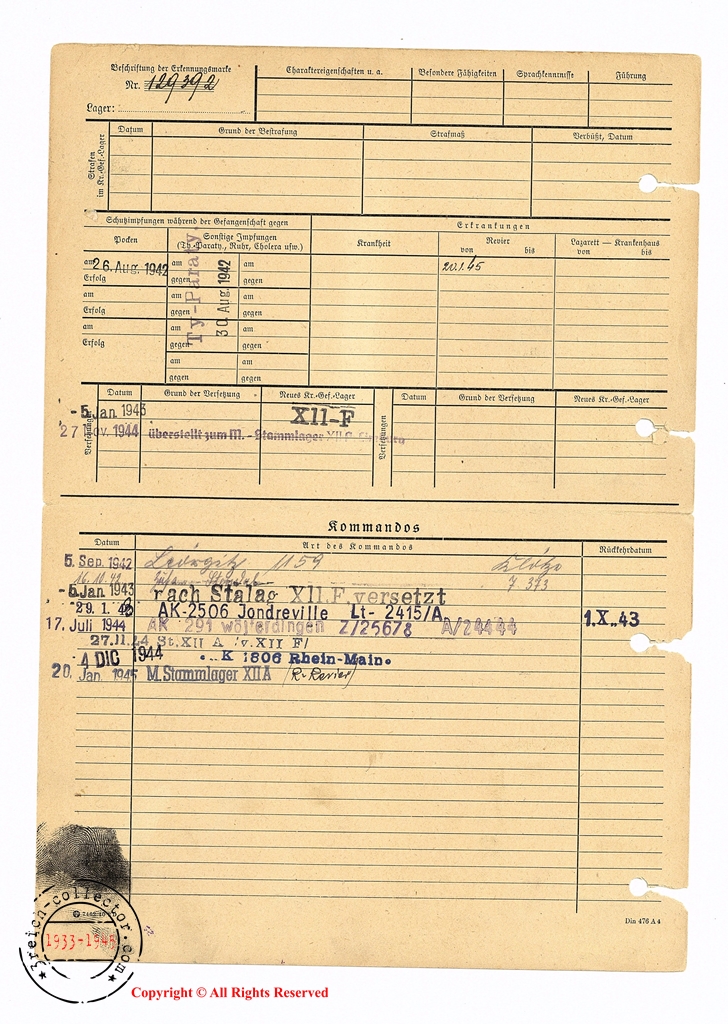 Beschriftung der Erkennungsmarke
Nr. 129392
Lager:
Charaktereigenschaften u. a.
Besondere Fähigkeiten
Sprachkenntnisse
Führung
Strafen im Kr.-Gef.-Lager
Datum
Grund der Bestrafung
Strafmaß
Verbüßt, Datum
Schutzimpfungen während der Gefangenschaft gegen
Erkrankungen
Pocken
Sonstige Impfungen
(Ty.-Paraty., Ruhr, Cholera usw.)
Krankheit
Revier
von bis
Lazarett — Krankenhaus
von bis
am 26. Aug. 1942
Erfolg
am
Erfolg
am
Erfolg
am
gegen
am
gegen
am
gegen
am
gegen
am
gegen
am
gegen
am
gegen
am
gegen
Ty-Paraty
30. Aug. 1942
20.1.45
Versetzungen
Datum
Grund der Versetzung
Neues Kr.-Gef.-Lager
Versetzungen
Datum
Grund der Versetzung
Neues Kr.-Gef.-Lager
- 5. Jan. 1943
XII-F
27 Nov. 1944 überstellt zum M.-Stammlager XII
Kommandos
Datum
Art des Kommandos
Rückkehrdatum
5. Sep. 1942 1159
16.10.42 7 373
- 5. Jan. 1943 nach Stalag XII.F versetzt
29. 1. 43 AK-2506 Jondreville Lt- 2415/A 1.X..43
17. Juli 1944 AK 291 wölferdingen Z/25678 A/24444
27.11.44 St.XII A /v.XII F/
4 DIC 1944 K 1806 Rhein-Main.
20. Jan. 1945 M.Stammlager XIIA (Kr. Revier)
Din 476 A 4
3reich-collector.com
1933-1945
Copyright © All Rights Reserved